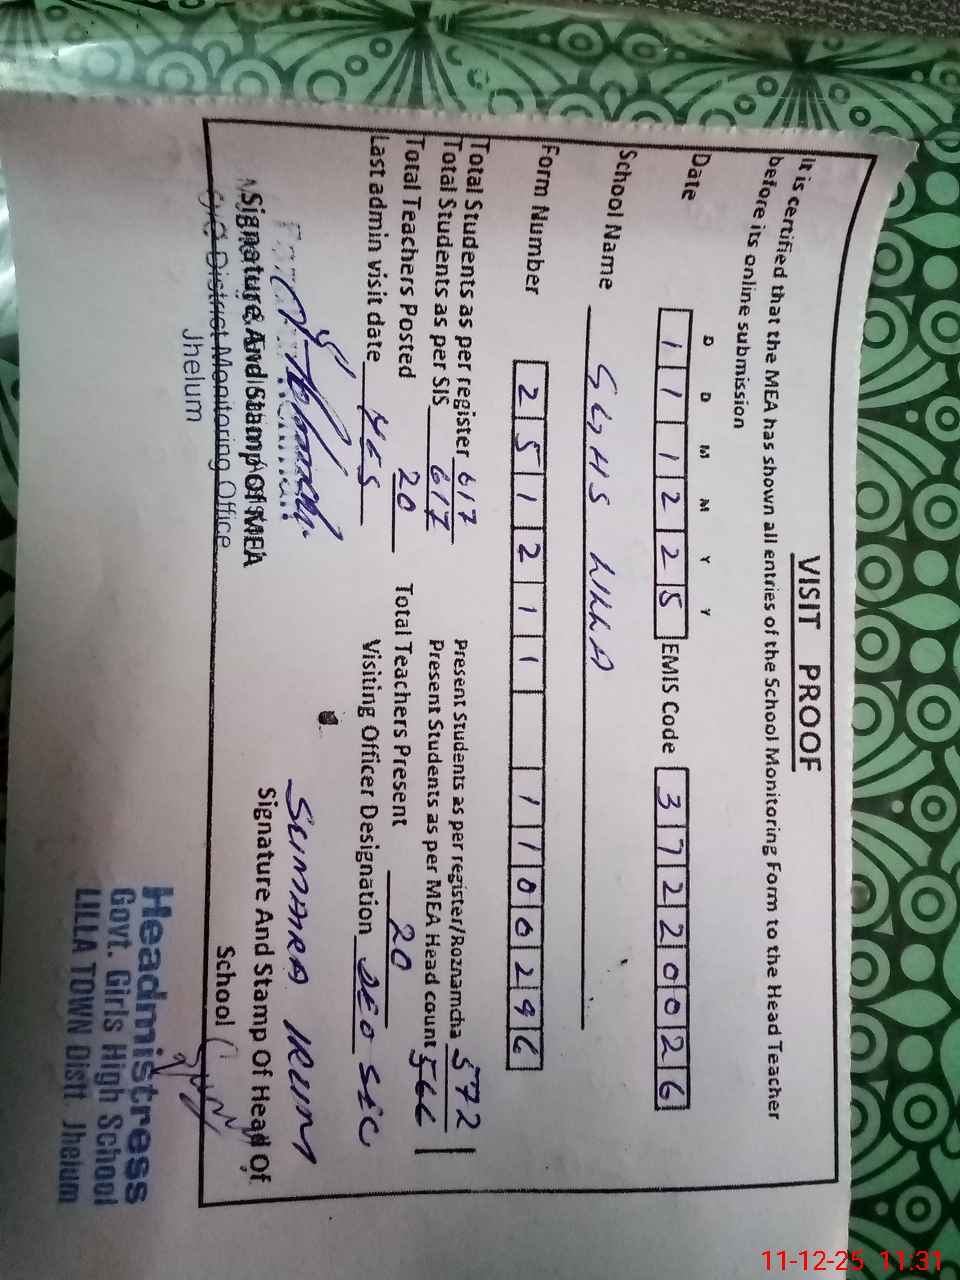 VISIT PROOF
It is certified that the MEA has shown all entries of the School Monitoring Form to the Head Teacher
before its online submission
D D M M Y Y
Date 111225 EMIS Code 37220026
School Name GGHS LILLA
Form Number 251211 1100296
Total Students as per register 617 Present Students as per register/Roznamcha 572
Total Students as per SIS 617 Present Students as per MEA Head count 566
Total Teachers Posted 20 Total Teachers Present 20
Last admin visit date YES Visiting Officer Designation DEO SEC
SUMAIRA IRUM
Signature And Stamp of MEA Signature And Stamp Of Head Of
School
District Monitoring Office
Jhelum
Headmistress
Govt. Girls High School
LILLA TOWN Distt Jhelum
11-12-25 11:31